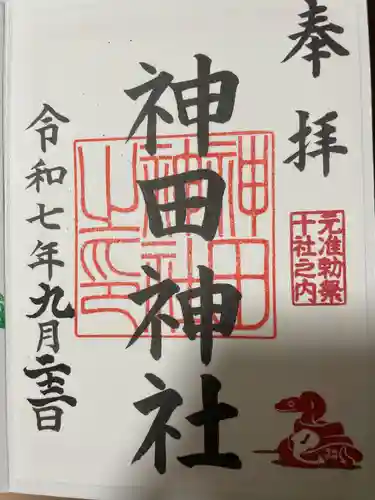 奉拝
元准勅祭
十社之内
神田神社
神田
神社
之印
令和七年九月二十三日